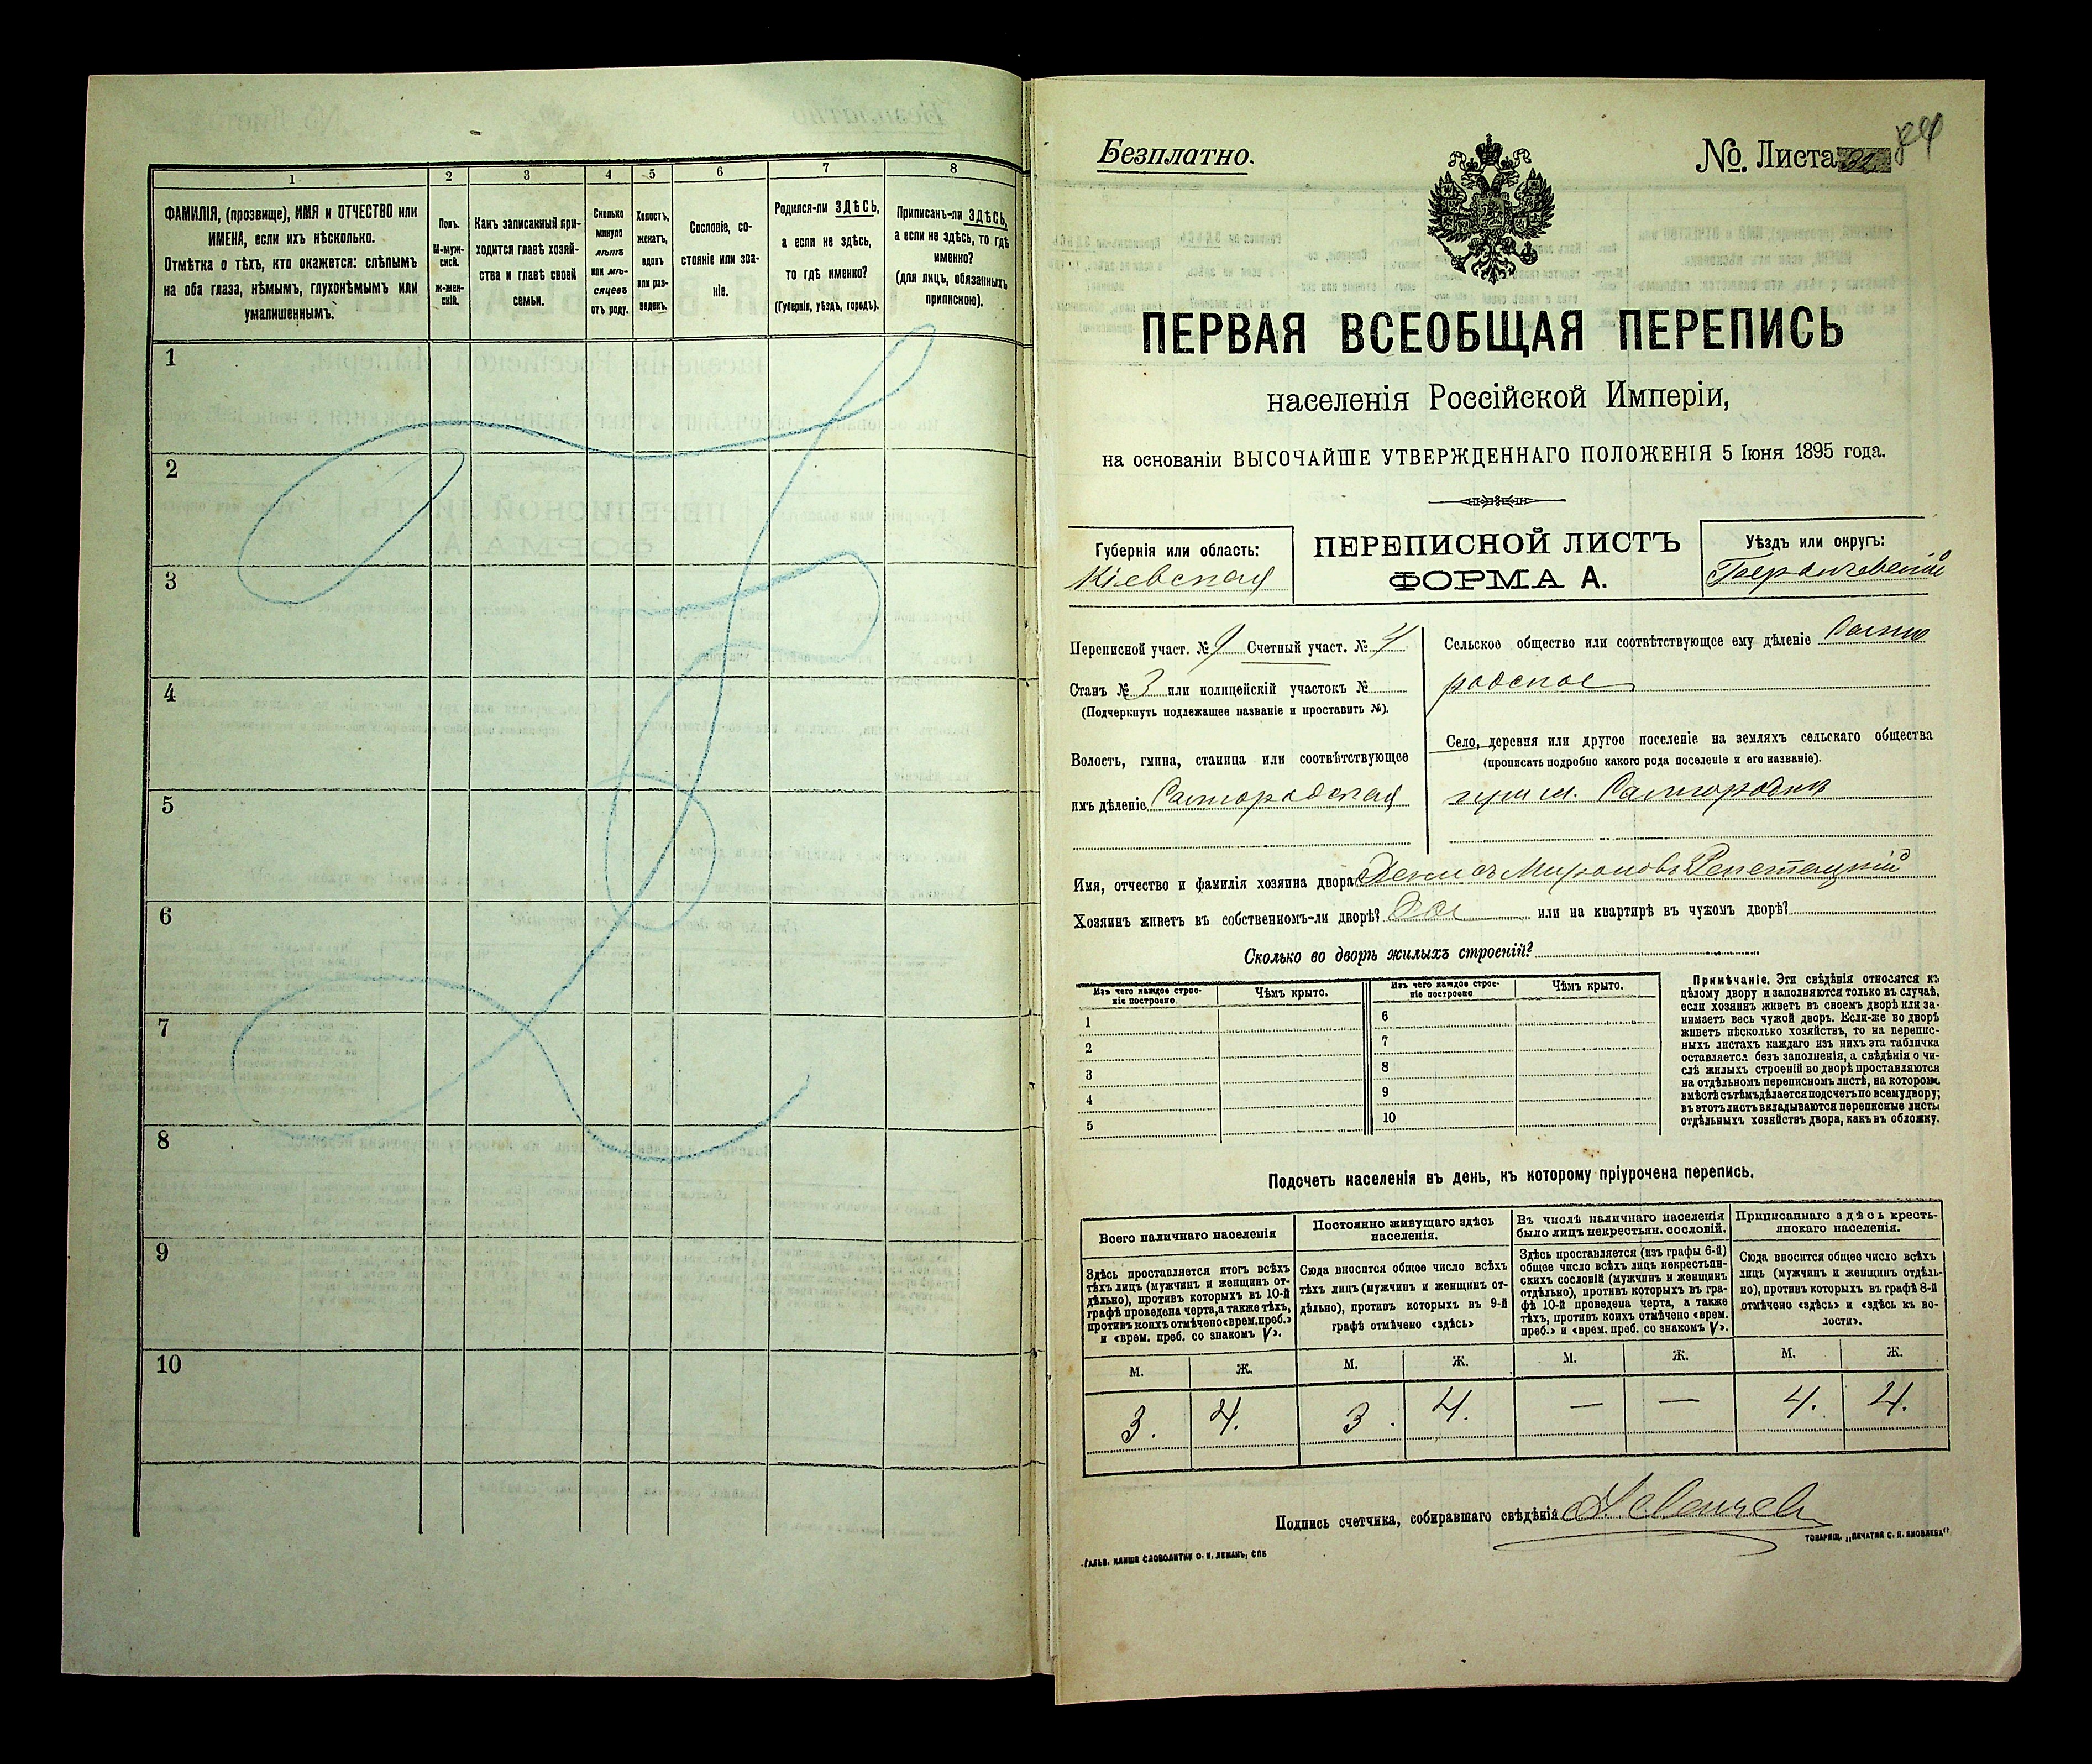 1 2 3 4 5 6 7 8
ФАМИЛІЯ, (прозвище), ИМЯ и ОТЧЕСТВО или
ИМЕНА, если ихъ нѣсколько.
Отмѣтка о тѣхъ, кто окажется: слѣпымъ
на оба глаза, нѣмымъ, глухонѣмымъ или
умалишеннымъ.
Полъ.
М-муж-
ской.
ж-жен-
скій.
Какъ записанный при-
ходится главѣ хозяй-
ства и главѣ своей
семьи.
Сколько
минуло
лѣтъ
или мѣ-
сяцевъ
отъ роду.
Холостъ,
женатъ,
вдовъ
или раз-
веденъ.
Сословіе, со-
стояніе или зва-
ніе.
Родился-ли ЗДѢСЬ,
а если не здѣсь,
то гдѣ именно?
(Губернія, уѣздъ, городъ).
Приписанъ-ли ЗДѢСЬ,
а если не здѣсь, то гдѣ
именно?
(для лицъ, обязанныхъ
припискою).
1
2
3
4
5
6
7
8
9
10
Безплатно.
№. Листа
84
ПЕРВАЯ ВСЕОБЩАЯ ПЕРЕПИСЬ
населенія Россійской Имперіи,
на основаніи ВЫСОЧАЙШЕ УТВЕРЖДЕННАГО ПОЛОЖЕНІЯ 5 Іюня 1895 года.
Губернія или область:
Кіевская
ПЕРЕПИСНОЙ ЛИСТЪ
ФОРМА А.
Уѣздъ или округъ:
Переписной участ. № 9 Счетный участ. № 4
Станъ № 3 или полицейскій участокъ №
(Подчеркнуть подлежащее названіе и проставить №).
Волость, гмина, станица или соотвѣтствующее
имъ дѣленіе
Сельское общество или соотвѣтствующее ему дѣленіе
Село, деревня или другое поселеніе на земляхъ сельскаго общества
(прописать подробно какого рода поселеніе и его названіе).
Имя, отчество и фамилія хозяина двора Мироновъ Репетацкій
Хозяинъ живетъ въ собственномъ-ли дворѣ? или на квартирѣ въ чужомъ дворѣ?
Сколько во дворѣ жилыхъ строеній?
Изъ чего каждое строе-
ніе построено
Чѣмъ крыто.
Изъ чего каждое строе-
ніе построено
Чѣмъ крыто.
1
2
3
4
5
6
7
8
9
10
Примѣчаніе. Эти свѣдѣнія относятся къ
цѣлому двору и заполняются только въ случаѣ,
если хозяинъ живетъ въ своемъ дворѣ или за-
нимаетъ весь чужой дворъ. Если-же во дворѣ
живетъ нѣсколько хозяйствъ, то на перепис-
ныхъ листахъ каждаго изъ нихъ эта табличка
оставляется безъ заполненія, а свѣдѣнія о чи-
слѣ жилыхъ строеній во дворѣ проставляются
на отдѣльномъ переписномъ листѣ, на которомъ
вмѣстѣ съ тѣмъ дѣлается подсчетъ по всему двору;
въ этотъ листъ вкладываются переписные листы
отдѣльныхъ хозяйствъ двора, какъ въ обложку.
Подсчетъ населенія въ день, къ которому пріурочена перепись.
Всего наличнаго населенія
Здѣсь проставляется итогъ всѣхъ
тѣхъ лицъ (мужчинъ и женщинъ от-
дѣльно), противъ которыхъ въ 10-й
графѣ проведена черта, а также тѣхъ,
противъ коихъ отмѣчено «врем. преб.»
и «врем. преб. со знакомъ V».
Постоянно живущаго здѣсь
населенія.
Сюда вносится общее число всѣхъ
тѣхъ лицъ (мужчинъ и женщинъ от-
дѣльно), противъ которыхъ въ 9-й
графѣ отмѣчено «здѣсь»
Въ числѣ наличнаго населенія
было лицъ некрестьян. сословій.
Здѣсь проставляется (изъ графы 6-й)
общее число всѣхъ лицъ некрестьян-
скихъ сословій (мужчинъ и женщинъ
отдѣльно), противъ которыхъ въ гра-
фѣ 10-й проведена черта, а также
тѣхъ, противъ коихъ отмѣчено «врем.
преб.» и «врем. преб. со знакомъ V».
Приписаннаго здѣсь кресть-
янскаго населенія.
Сюда вносится общее число всѣхъ
лицъ (мужчинъ и женщинъ отдѣль-
но), противъ которыхъ въ графѣ 8-й
отмѣчено «здѣсь» и «здѣсь къ во-
лости».
М. Ж. М. Ж. М. Ж. М. Ж.
3. 4. 3. 4. — — 4. 4.
Подпись счетчика, собиравшаго свѣдѣнія
ГАЛЬВ. КЛИШЕ СЛОВОЛИТНИ О. И. ЛЕМАНЪ, СПБ
ТОВАРИЩ. „ПЕЧАТНЯ С. П. ЯКОВЛЕВА"